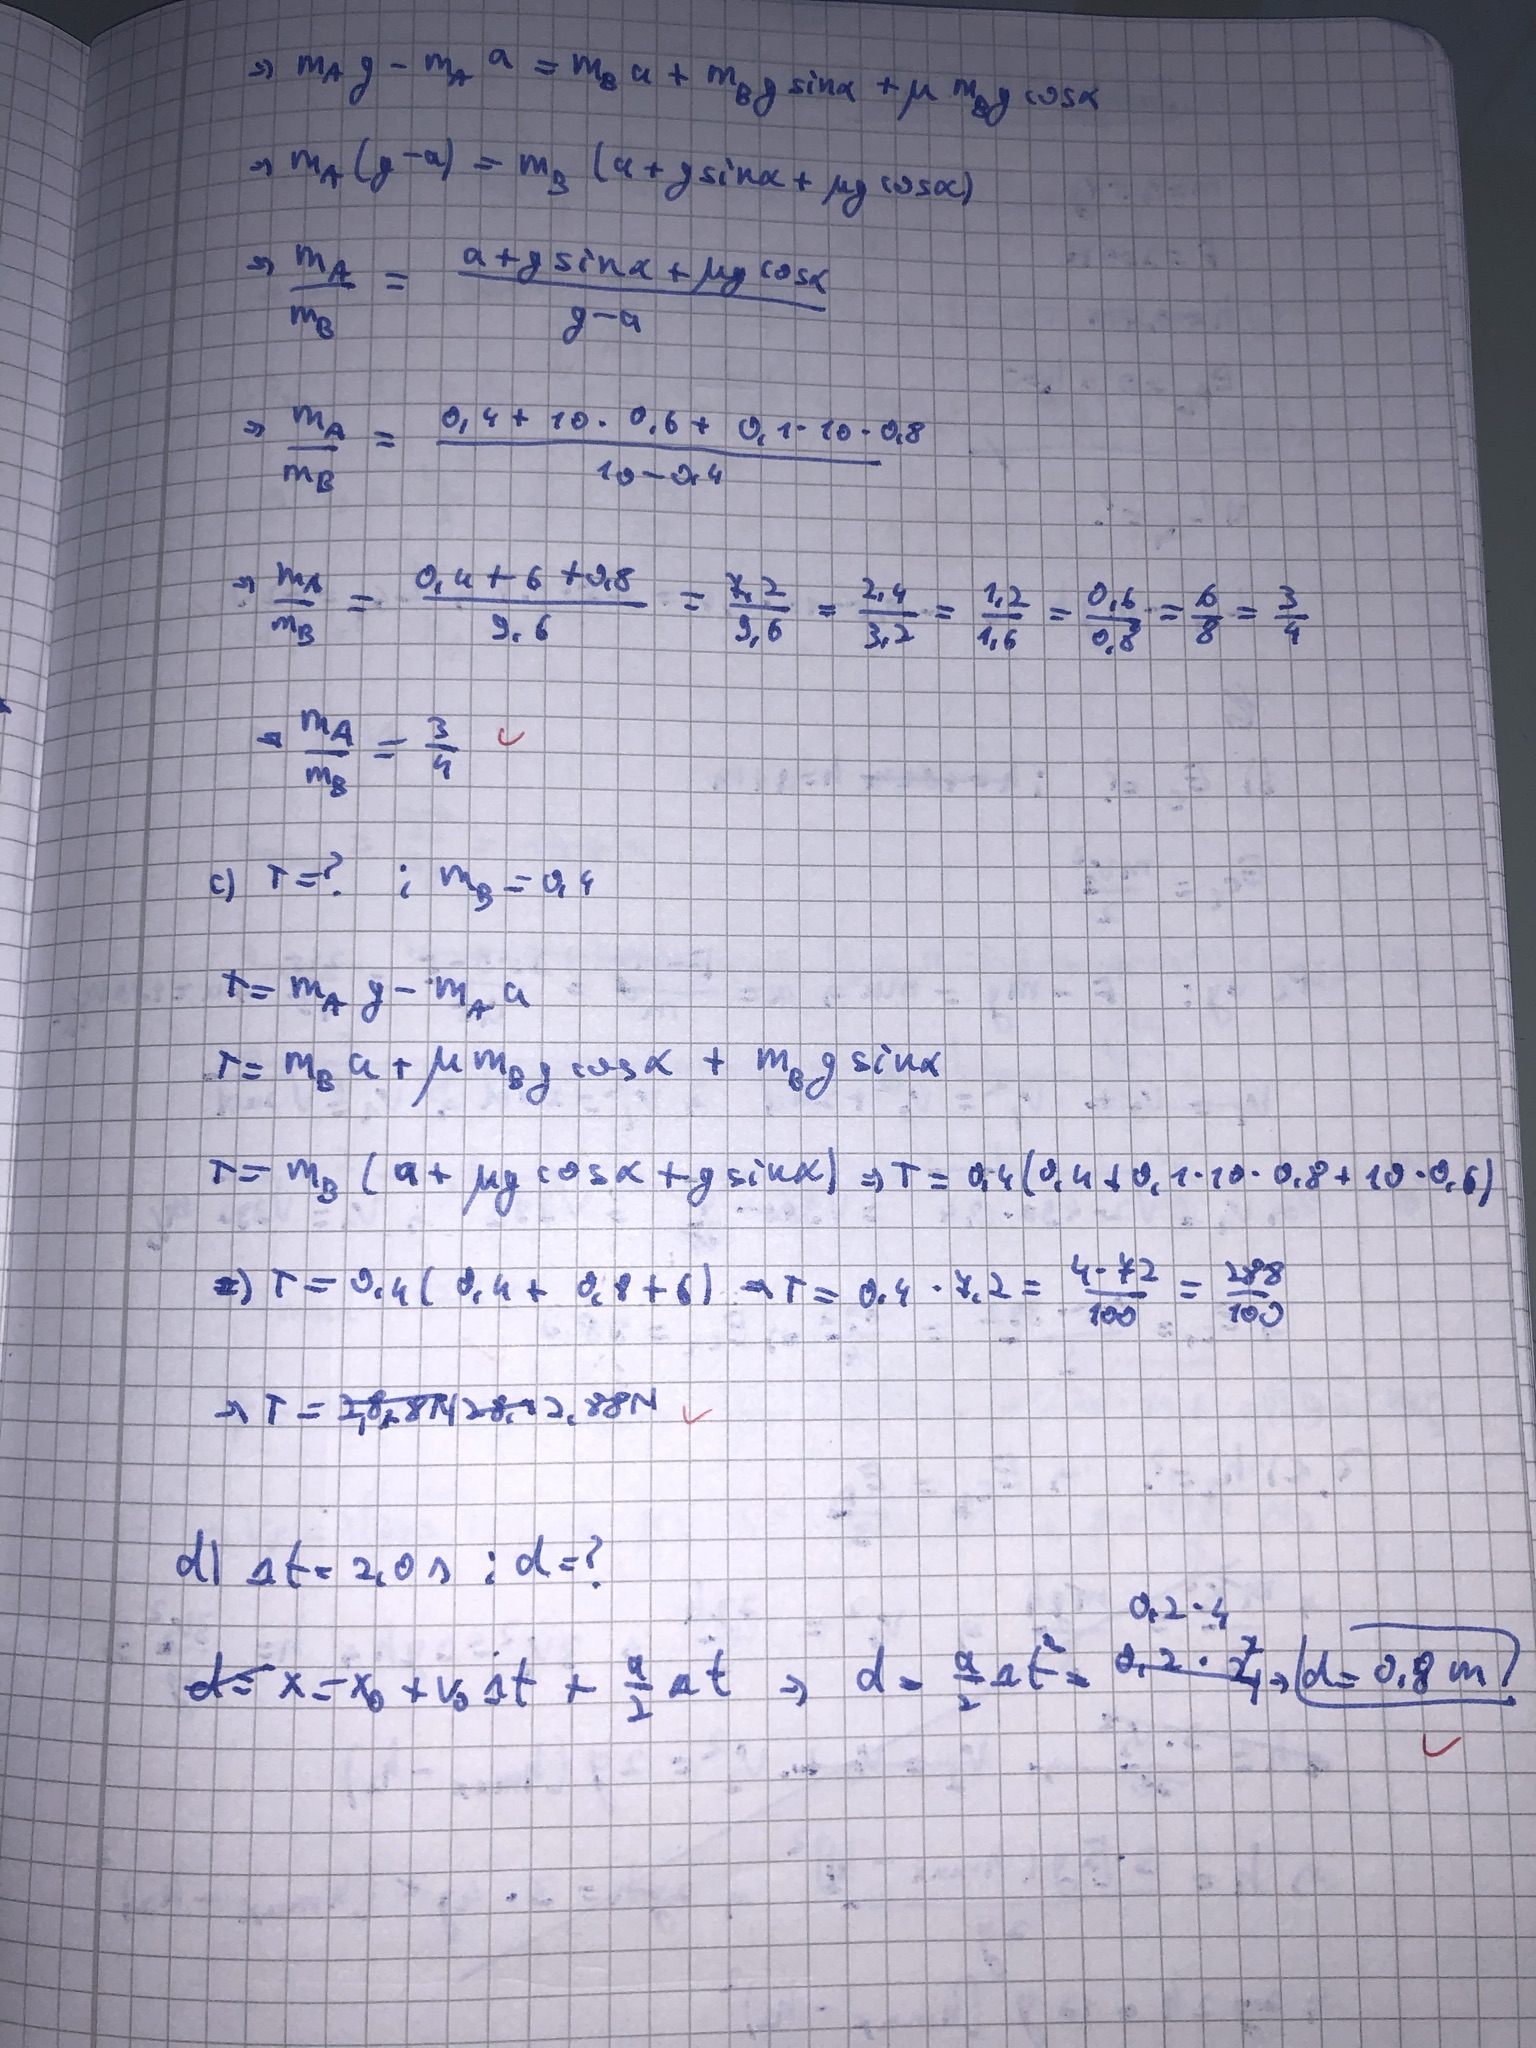 ⇒ mA g - mA a = mB a + mB g sinα + μ mB g cosα
⇒ mA (g-a) = mB (a + g sinα + μg cosα)
⇒ mA/mB = (a + g sinα + μg cosα)/(g-a)
⇒ mA/mB = (0,4 + 10 · 0,6 + 0,1 · 10 · 0,8)/(10 - 0,4)
⇒ mA/mB = (0,4 + 6 + 0,8)/9,6 = 7,2/9,6 = 2,4/3,2 = 1,2/1,6 = 0,6/0,8 = 6/8 = 3/4
⇒ mA/mB = 3/4 ✓
c) T = ? ; mB = 0,4
T = mA g - mA a
T = mB a + μ mB g cosα + mB g sinα
T = mB (a + μg cosα + g sinα) ⇒ T = 0,4 (0,4 + 0,1 · 10 · 0,8 + 10 · 0,6)
⇒ T = 0,4 (0,4 + 0,8 + 6) ⇒ T = 0,4 · 7,2 = 4·72/100 = 288/100
⇒ T = 2,88N ✓
d) Δt = 2,0 s ; d = ?
0,2 · 4
d = x = x0 + v0 Δt + a/2 Δt ⇒ d = a/2 Δt² = ⇒ d = 0,8 m ✓